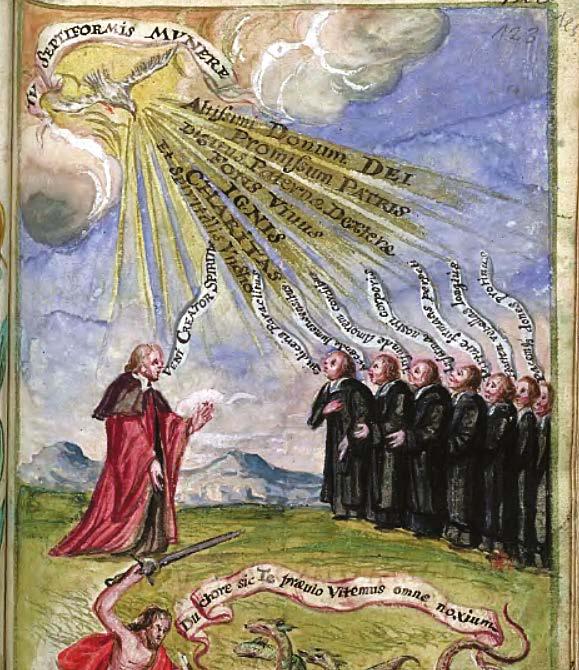 TV SEPTIFORMIS MVNERE
123
Altissimi Donum DEI
Promissum PATRIS
Digitus Paternæ Dexteræ
FONS Vivus
IGNIS
CHARITAS
Et Spiritalis Vnctio
VENI CREATOR SPIRITUS
Qui diceris Paraclitus
Accende lumen sensibus
Infunde Amorem cordibus
Infirma nostri corporis
Virtute firmans perpeti
Hostem repellas longius
Pacemq; dones protinus
Ductore sic Te prævio Vitemus omne noxium